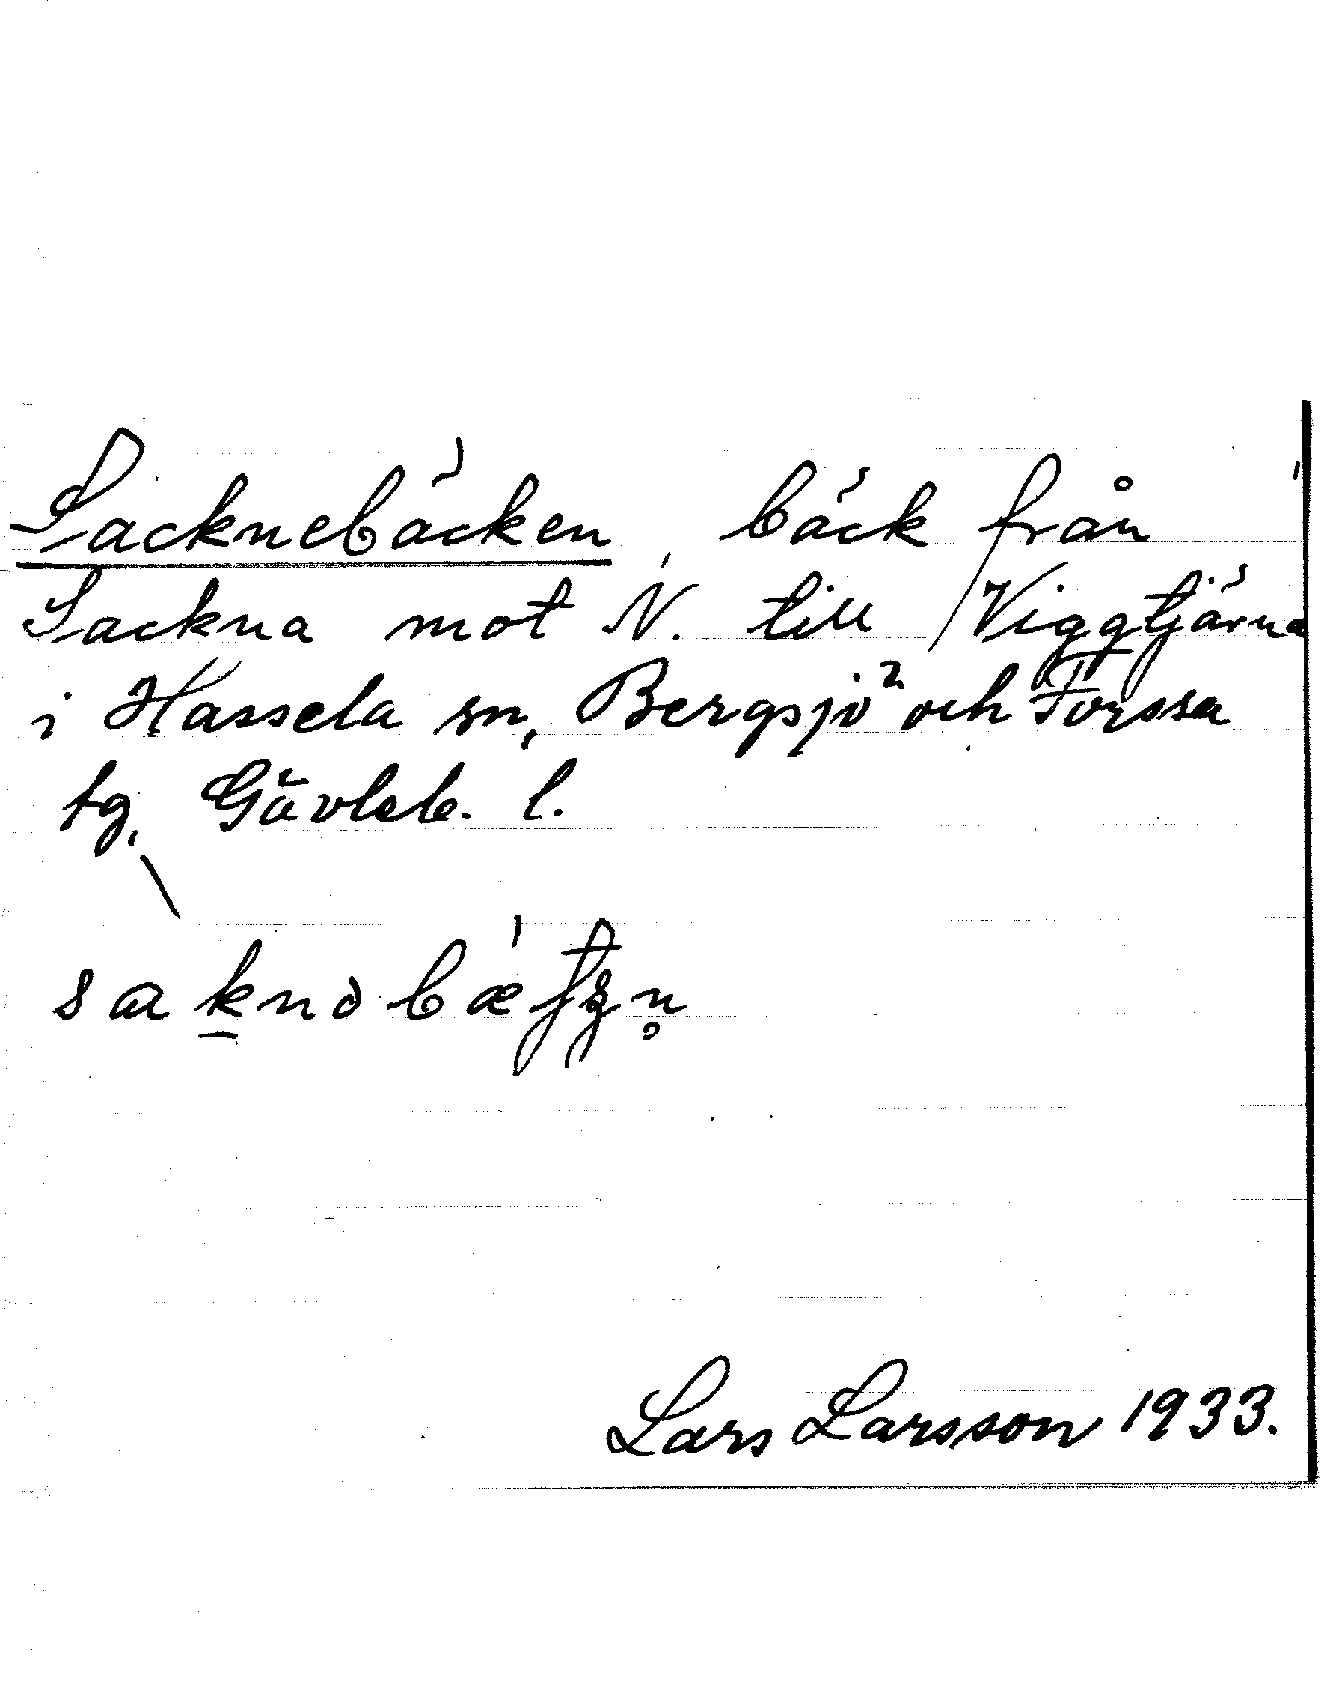 Sacknebäcken, bäck från
Sackna mot N. till Viggtjärna
i Hassela sn, Bergsjö och Forssa
tg, Gävleb. l.
Lars Larsson 1933.